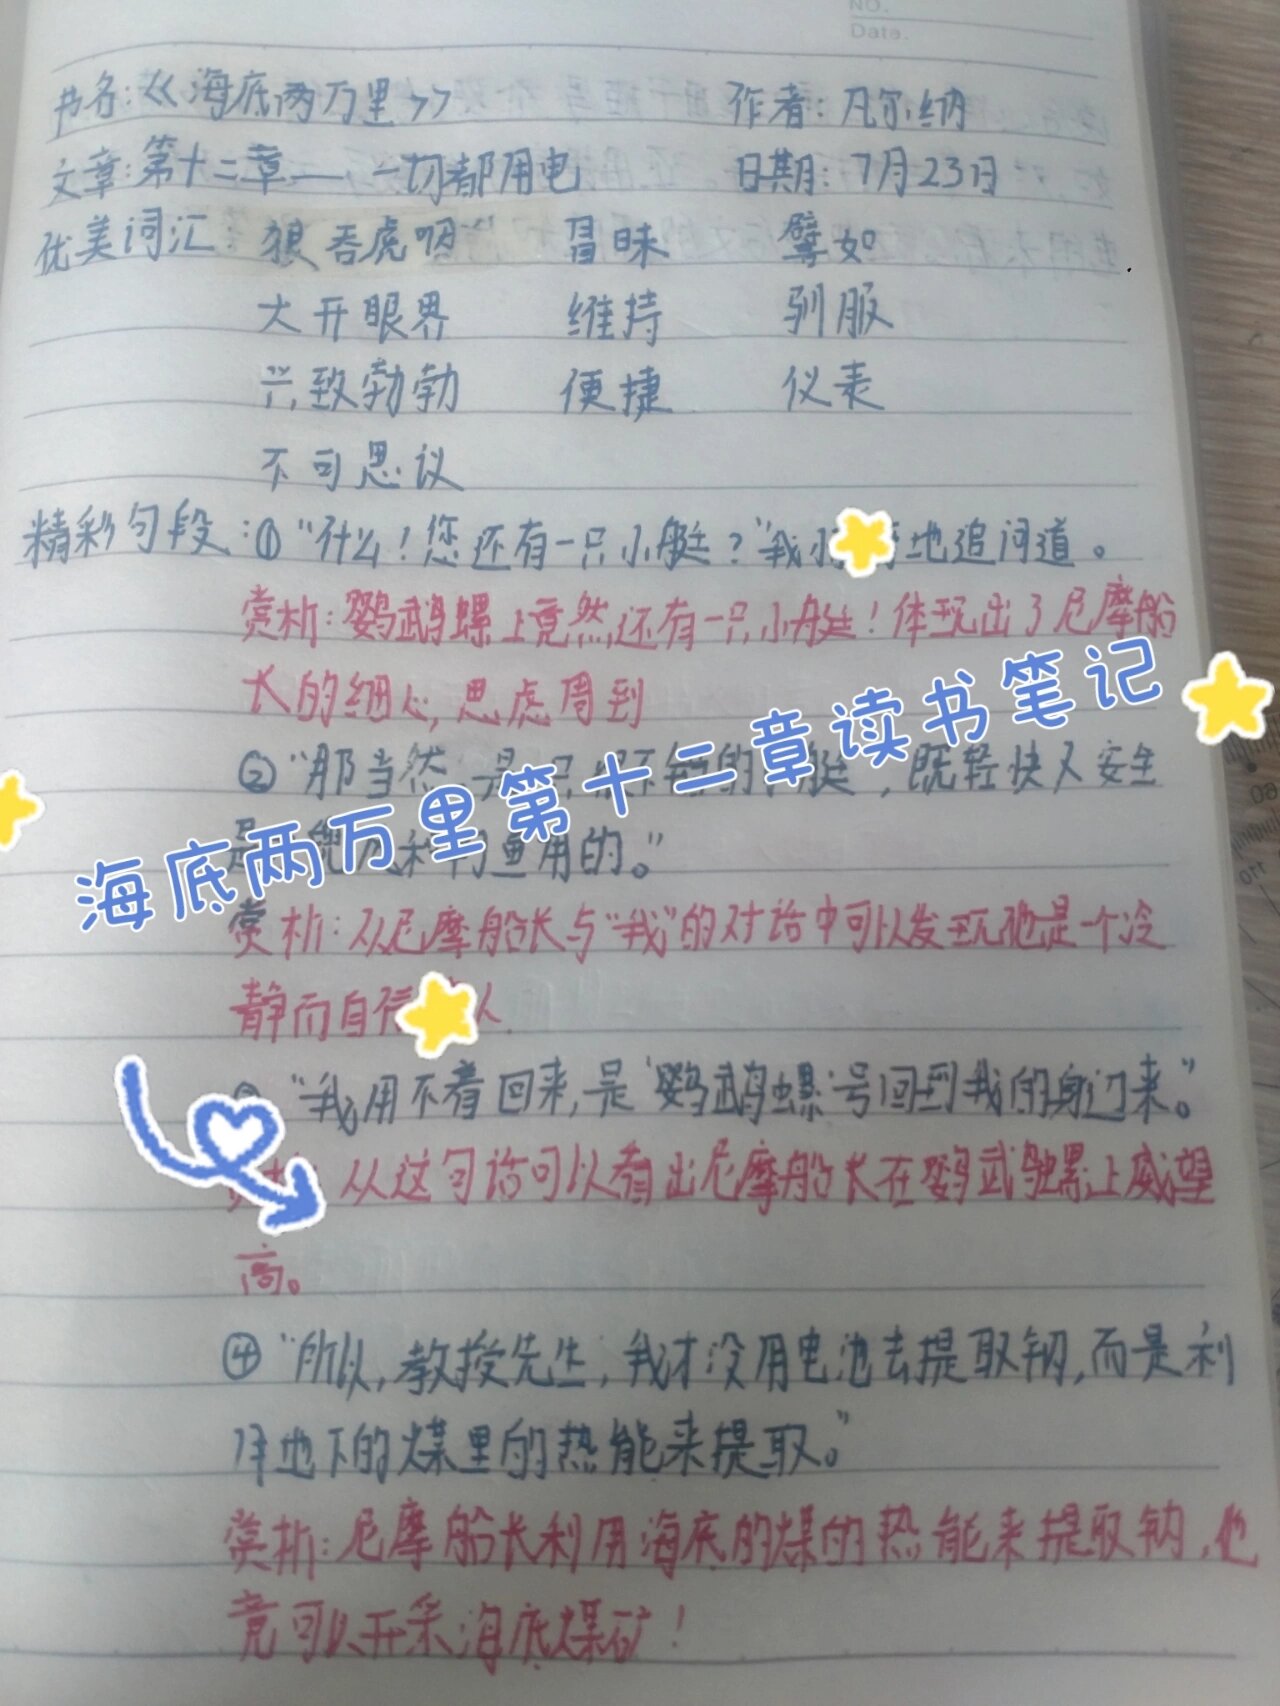 NO.
Date.
书名:《海底两万里》 作者:凡尔纳
文章:第十二章——一切都用电 日期:7月23日
优美词汇: 狼吞虎咽 冒昧 譬如
大开眼界 维持 驯服
兴致勃勃 便捷 仪表
不可思议
精彩句段:①“什么!您还有一只小艇?”我 地追问道。
赏析:鹦鹉螺上竟然还有一只小艇!体现出了尼摩船
长的细心,思虑周到
海底两万里第十二章读书笔记
②“那当然 是 艇,既轻快又安全
鱼用的。”
赏析:从尼摩船长与“我”的对话中可以发现他是一个冷
静而自信 人
“我用不着回来,是‘鹦鹉螺’号回到我的身边来。”
从这句话可以看出尼摩船长在鹦鹉螺上威望
高。
④“所以,教授先生,我才没用电池去提取钠,而是利
用地下的煤里的热能来提取。”
赏析:尼摩船长利用海底的煤的热能来提取钠,他
竟可以开采海底煤矿!
60
110